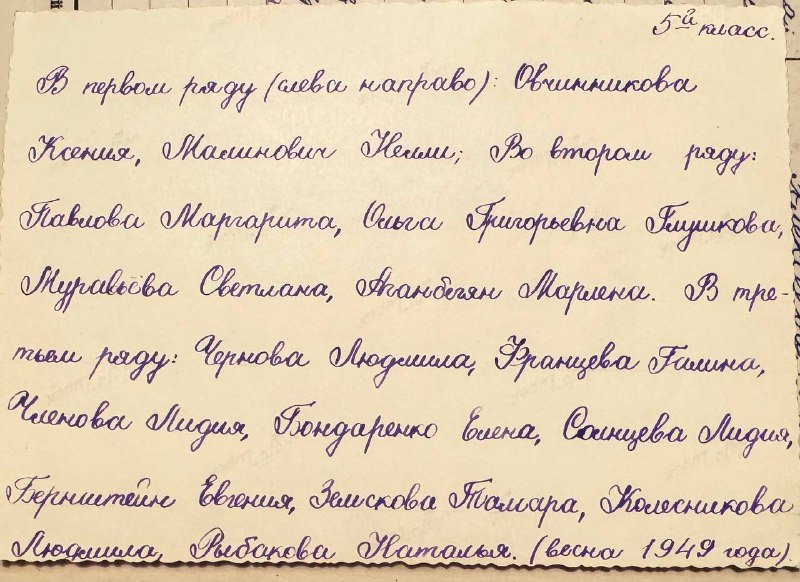 5й класс.
В первом ряду (слева направо): Овчинникова
Ксения, Малинович Нелли; Во втором ряду:
Павлова Маргарита, Ольга Григорьевна Глушкова,
Муравьёва Светлана, Аганбегян Марлена. В тре-
тьем ряду: Чернова Людмила, Францева Галина,
Членова Лидия, Бондаренко Елена, Солнцева Лидия,
Бернштейн Евгения, Земскова Тамара, Колесникова
Людмила, Рыбакова Наталья. (весна 1949 года).